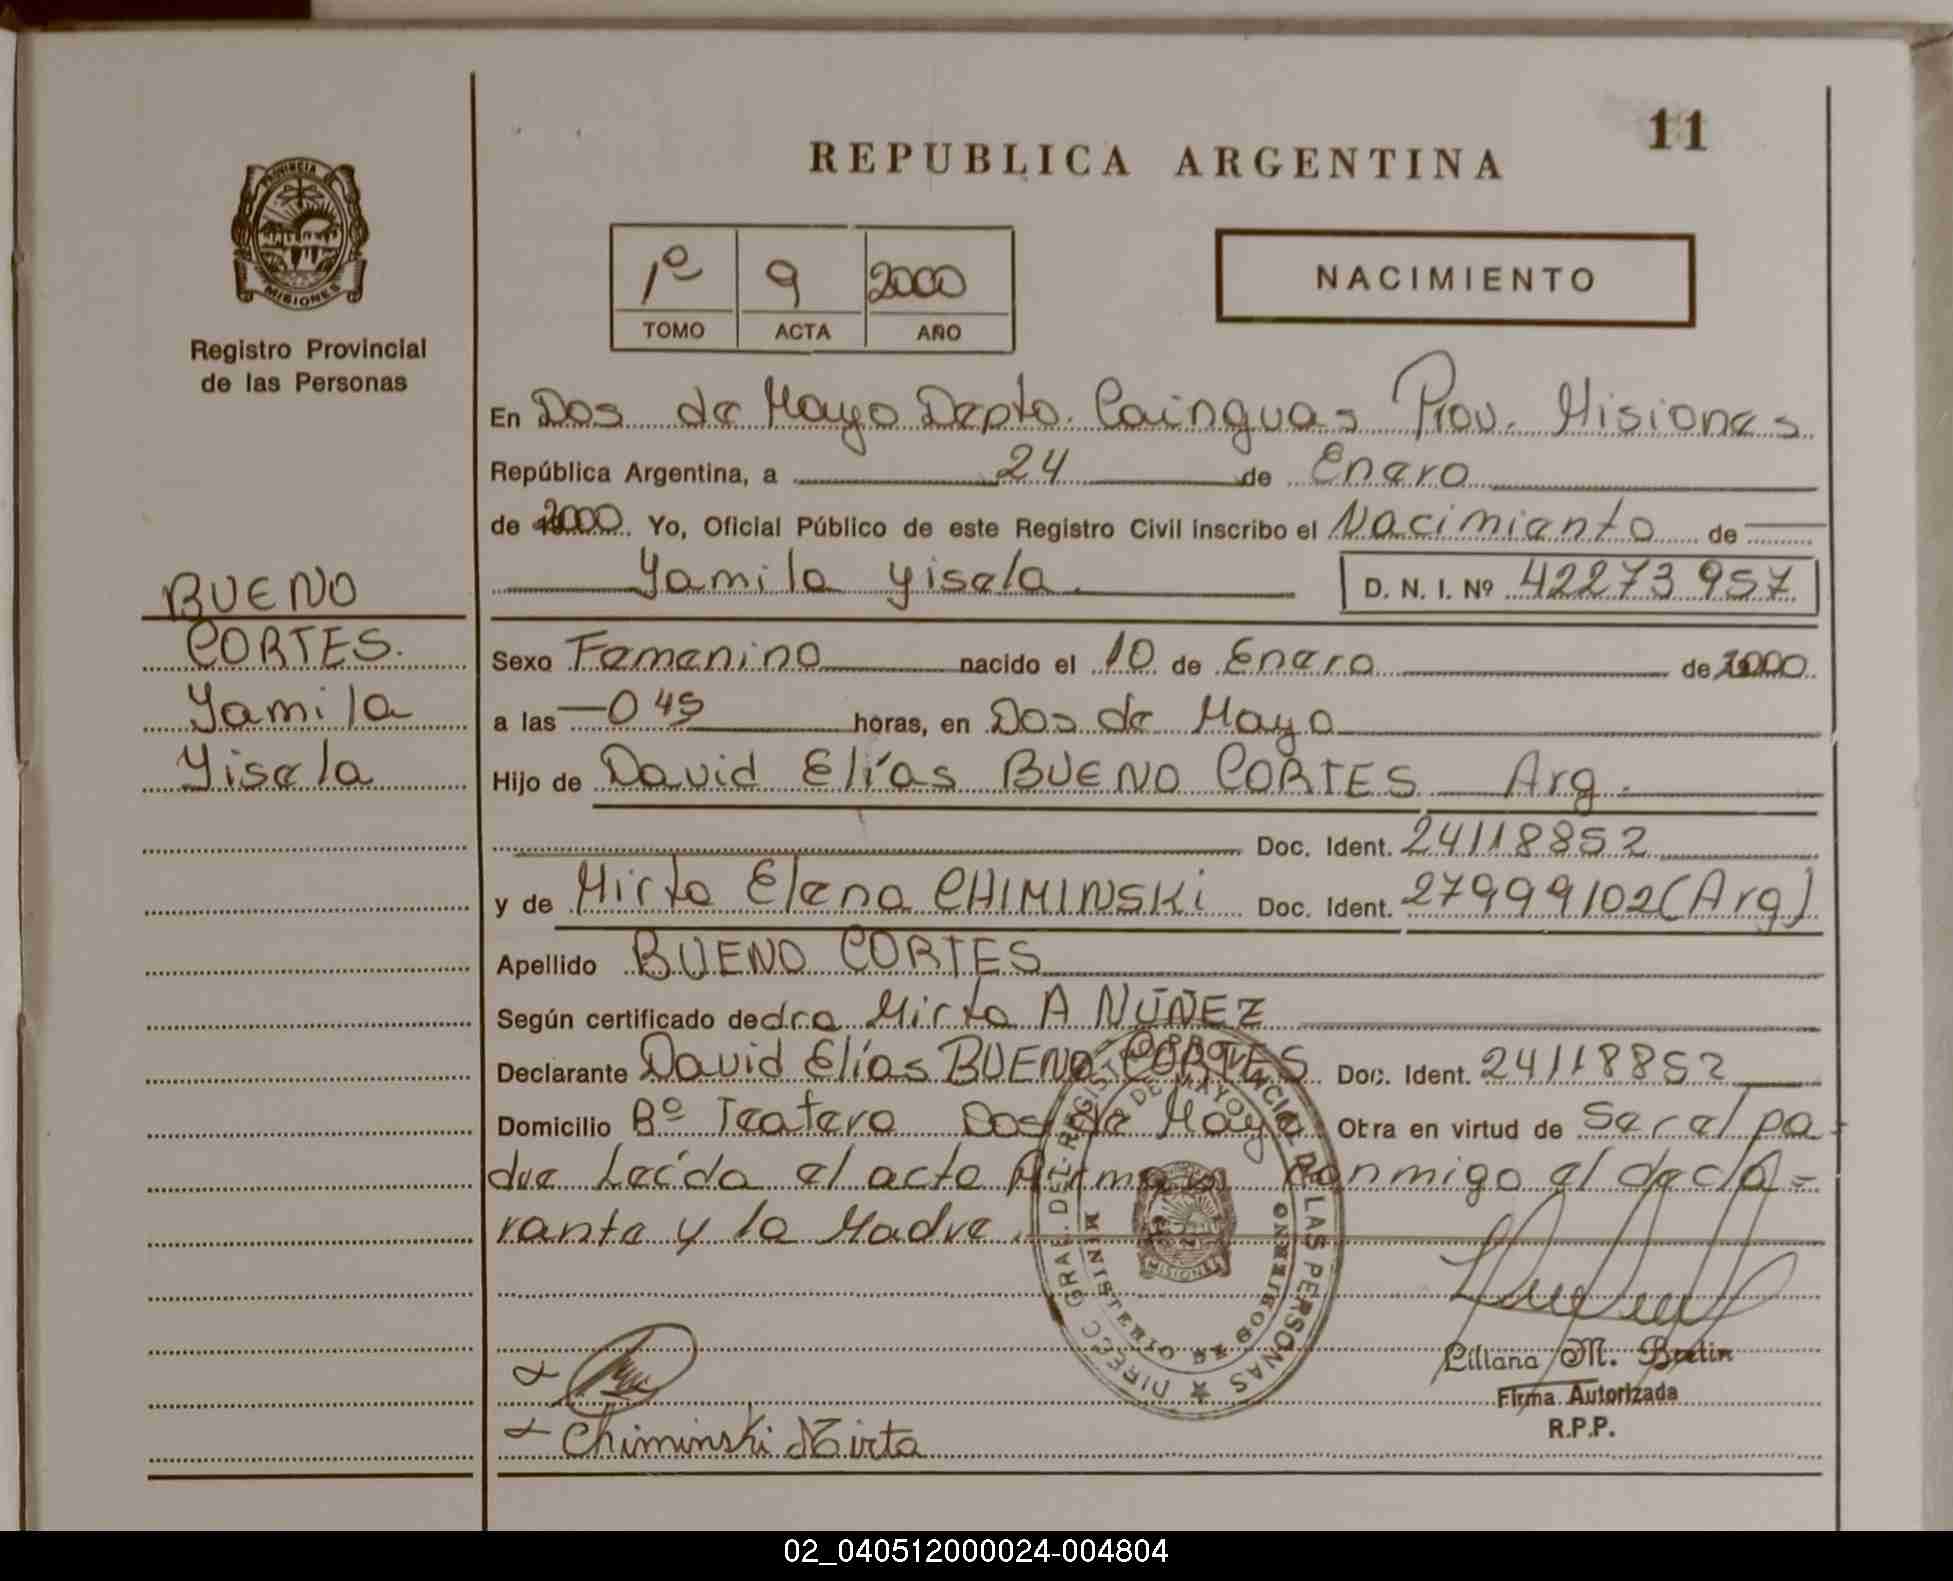 11
REPUBLICA ARGENTINA
PROVINCIA DE
MISIONES
Registro Provincial
de las Personas
1º 9 2000
TOMO ACTA AÑO
NACIMIENTO
En Dos de Mayo Depto. Cainguas Prov. Misiones
República Argentina, a 24 de Enero
de 2000 Yo, Oficial Público de este Registro Civil inscribo el Nacimiento de
Yamila Yisela. D. N. I. Nº 42273957
BUENO
CORTES.
Yamila
Yisela
Sexo Femenino nacido el 10 de Enero de 2000
a las 0 45 horas, en Dos de Mayo
Hijo de David Elías BUENO CORTES Arg.
Doc. Ident. 24118852
y de Mirta Elena CHIMINSKi Doc. Ident. 27999102 (Arg)
Apellido BUENO CORTES
Según certificado de dra Mirta A NÚÑEZ
Declarante David Elías BUENO CORTES Doc. Ident. 24118852
Domicilio Bº Tealero Dos de Mayo Otra en virtud de Ser el pa=
dre Leída el acta firman conmigo el decla=
rante y la Madre.
DIRECC GRAL. DEL REGISTRO PROVINCIAL DE LAS PERSONAS
DOS DE MAYO
MINISTERIO DE GOBIERNO
MISIONES
Liliana M. Bretin
Firma Autorizada
R.P.P.
Chiminski Mirta
02_040512000024-004804